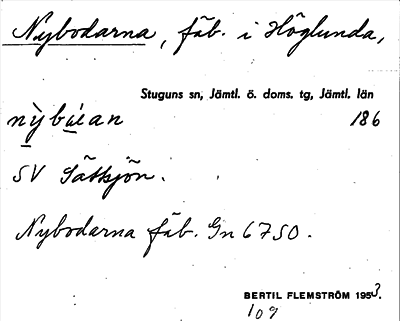 Nybodarna, fäb. i Höglunda,
Stuguns sn, Jämtl. ö. doms. tg, Jämtl. län
186
SV
Nybodarna fäb. Gn 6750.
BERTIL FLEMSTRÖM 1953.
109